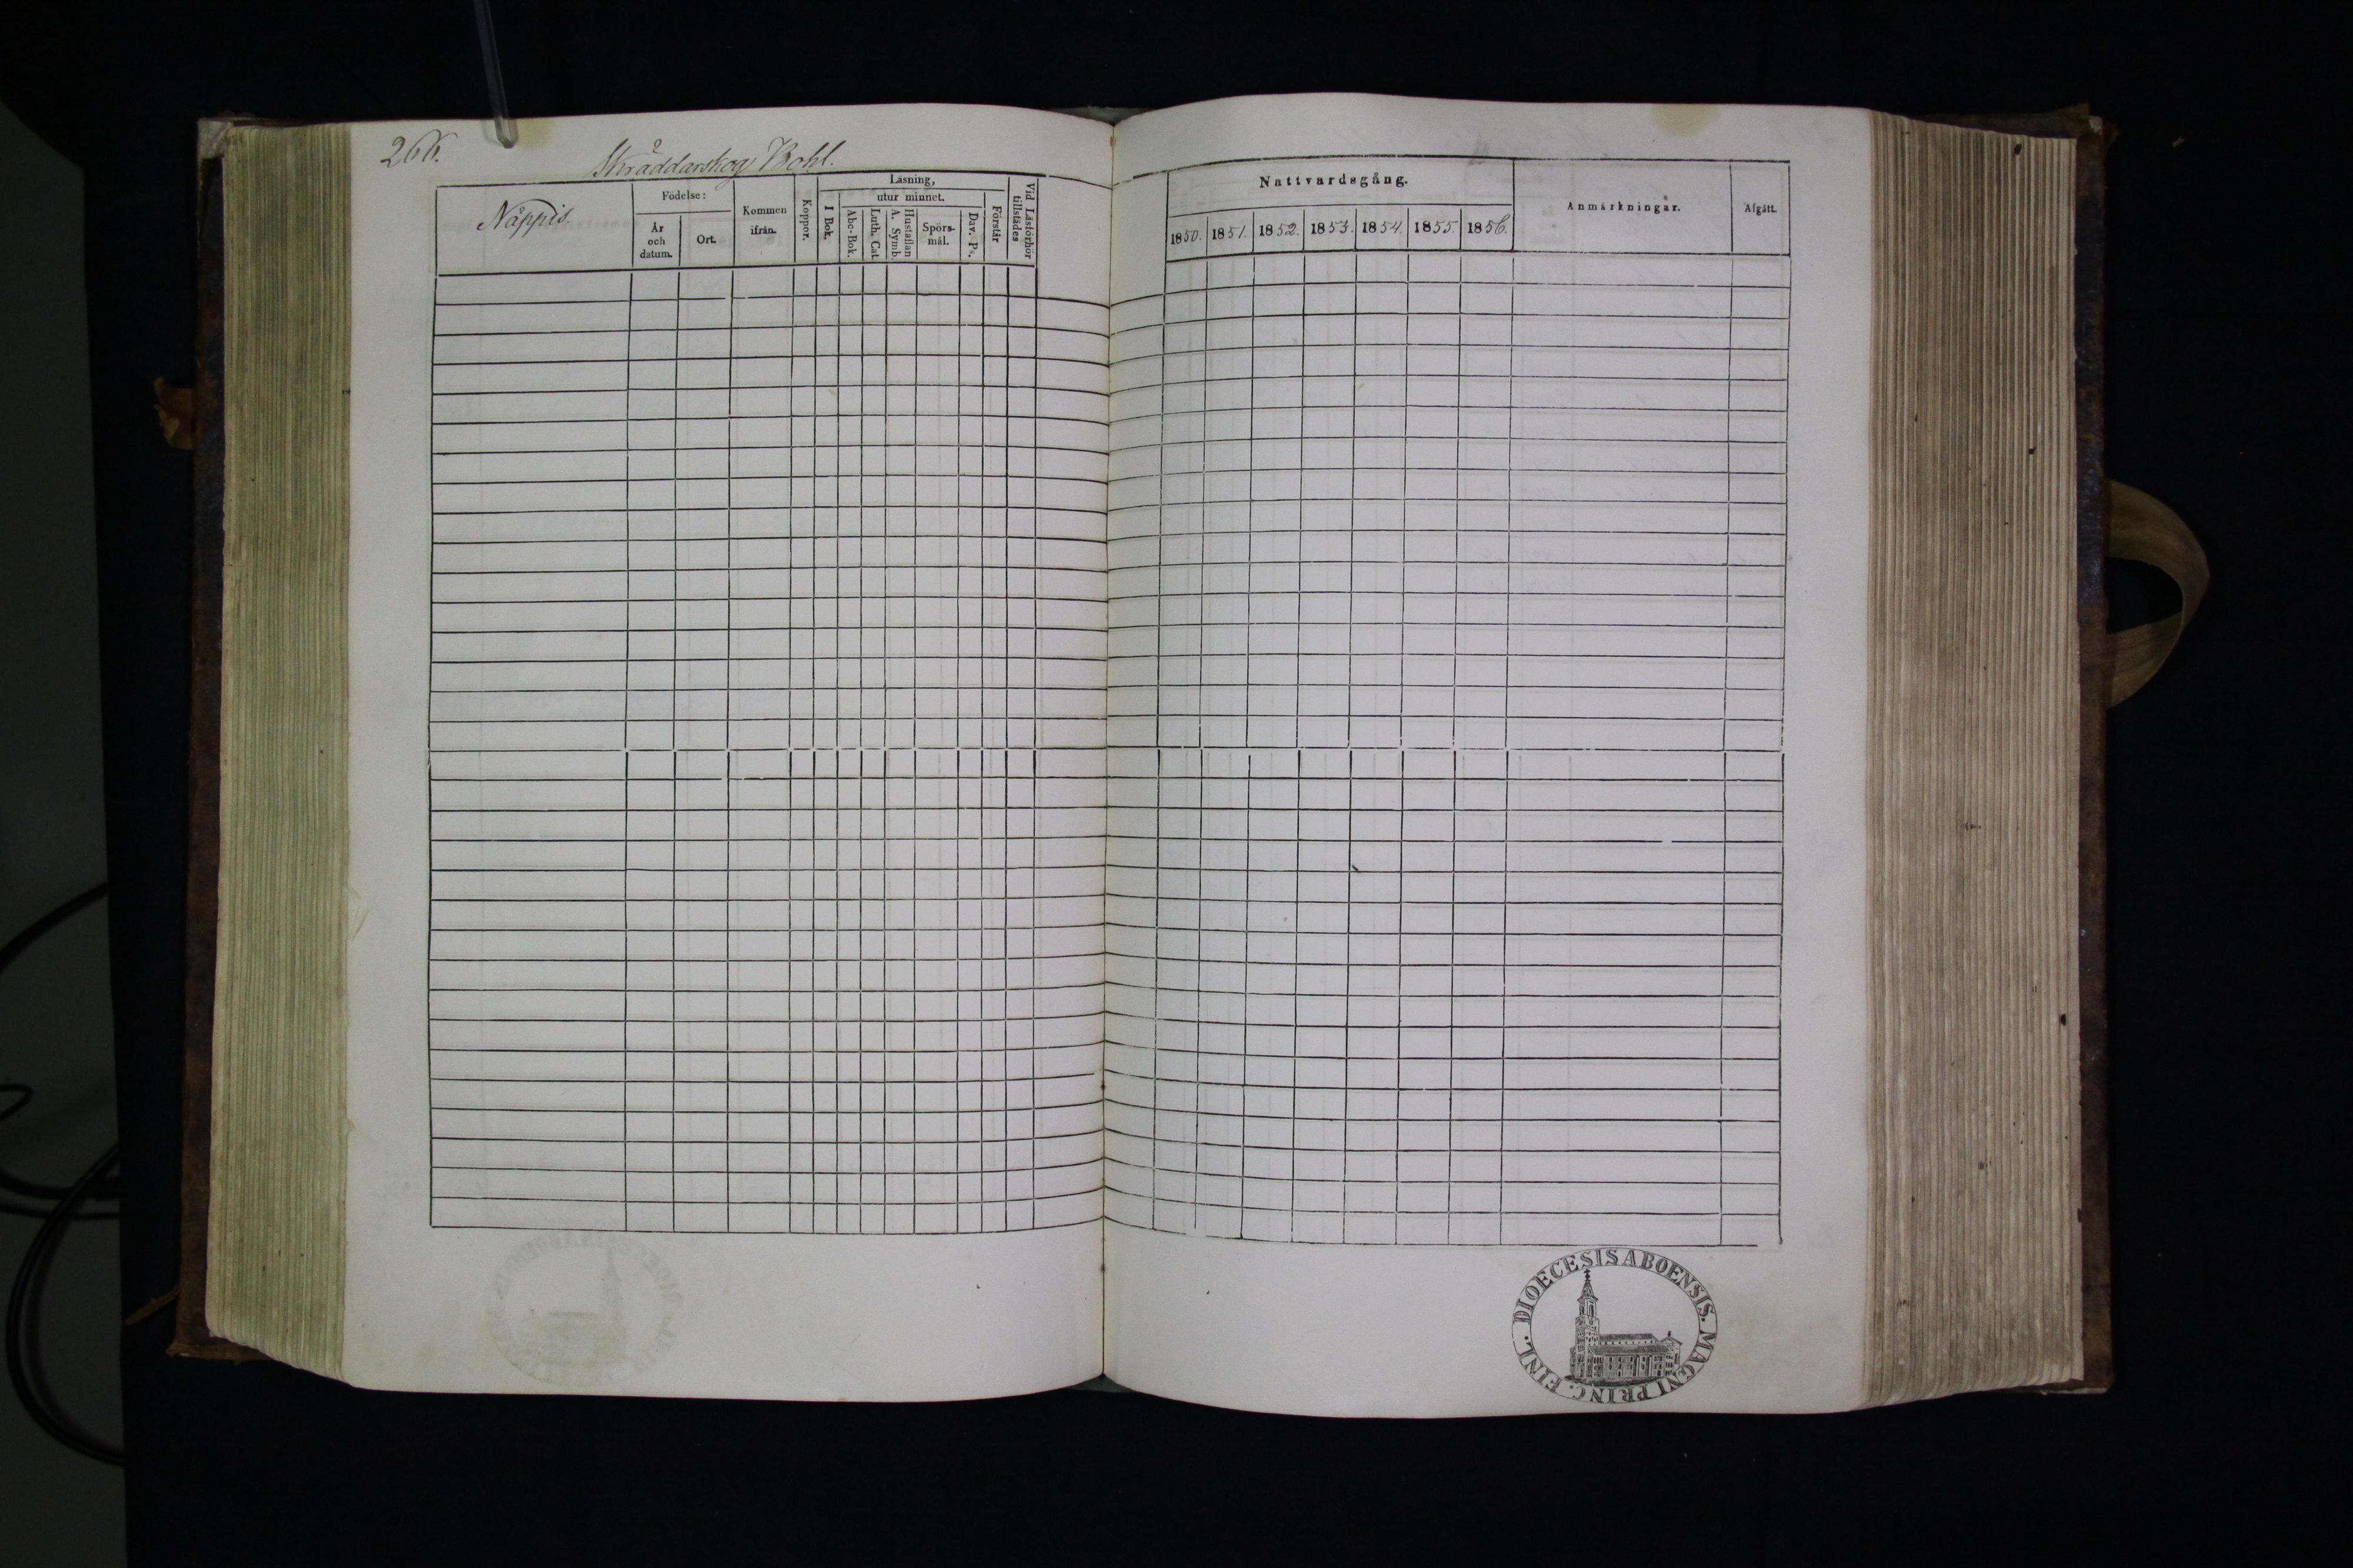 266.
Skräddarskog Bohl.
Nåppis.
Födelse:
År
och
datum.
Ort.
Kommen
ifrån.
Koppor.
Läsning,
I Bok.
utur minnet.
Abc-Bok.
Luth. Cat.
A. Symb.
Hustaflan
Spörs-
mål.
Dav. Ps.
Förstår
Vid Läsförhör
tillstädes
Nattvardsgång.
1850. 1851. 1852. 1853. 1854. 1855. 1856.
Anmärkningar.
Afgått.
DIOECESIS ABOENSIS. MAGNI PRINC. FINL.